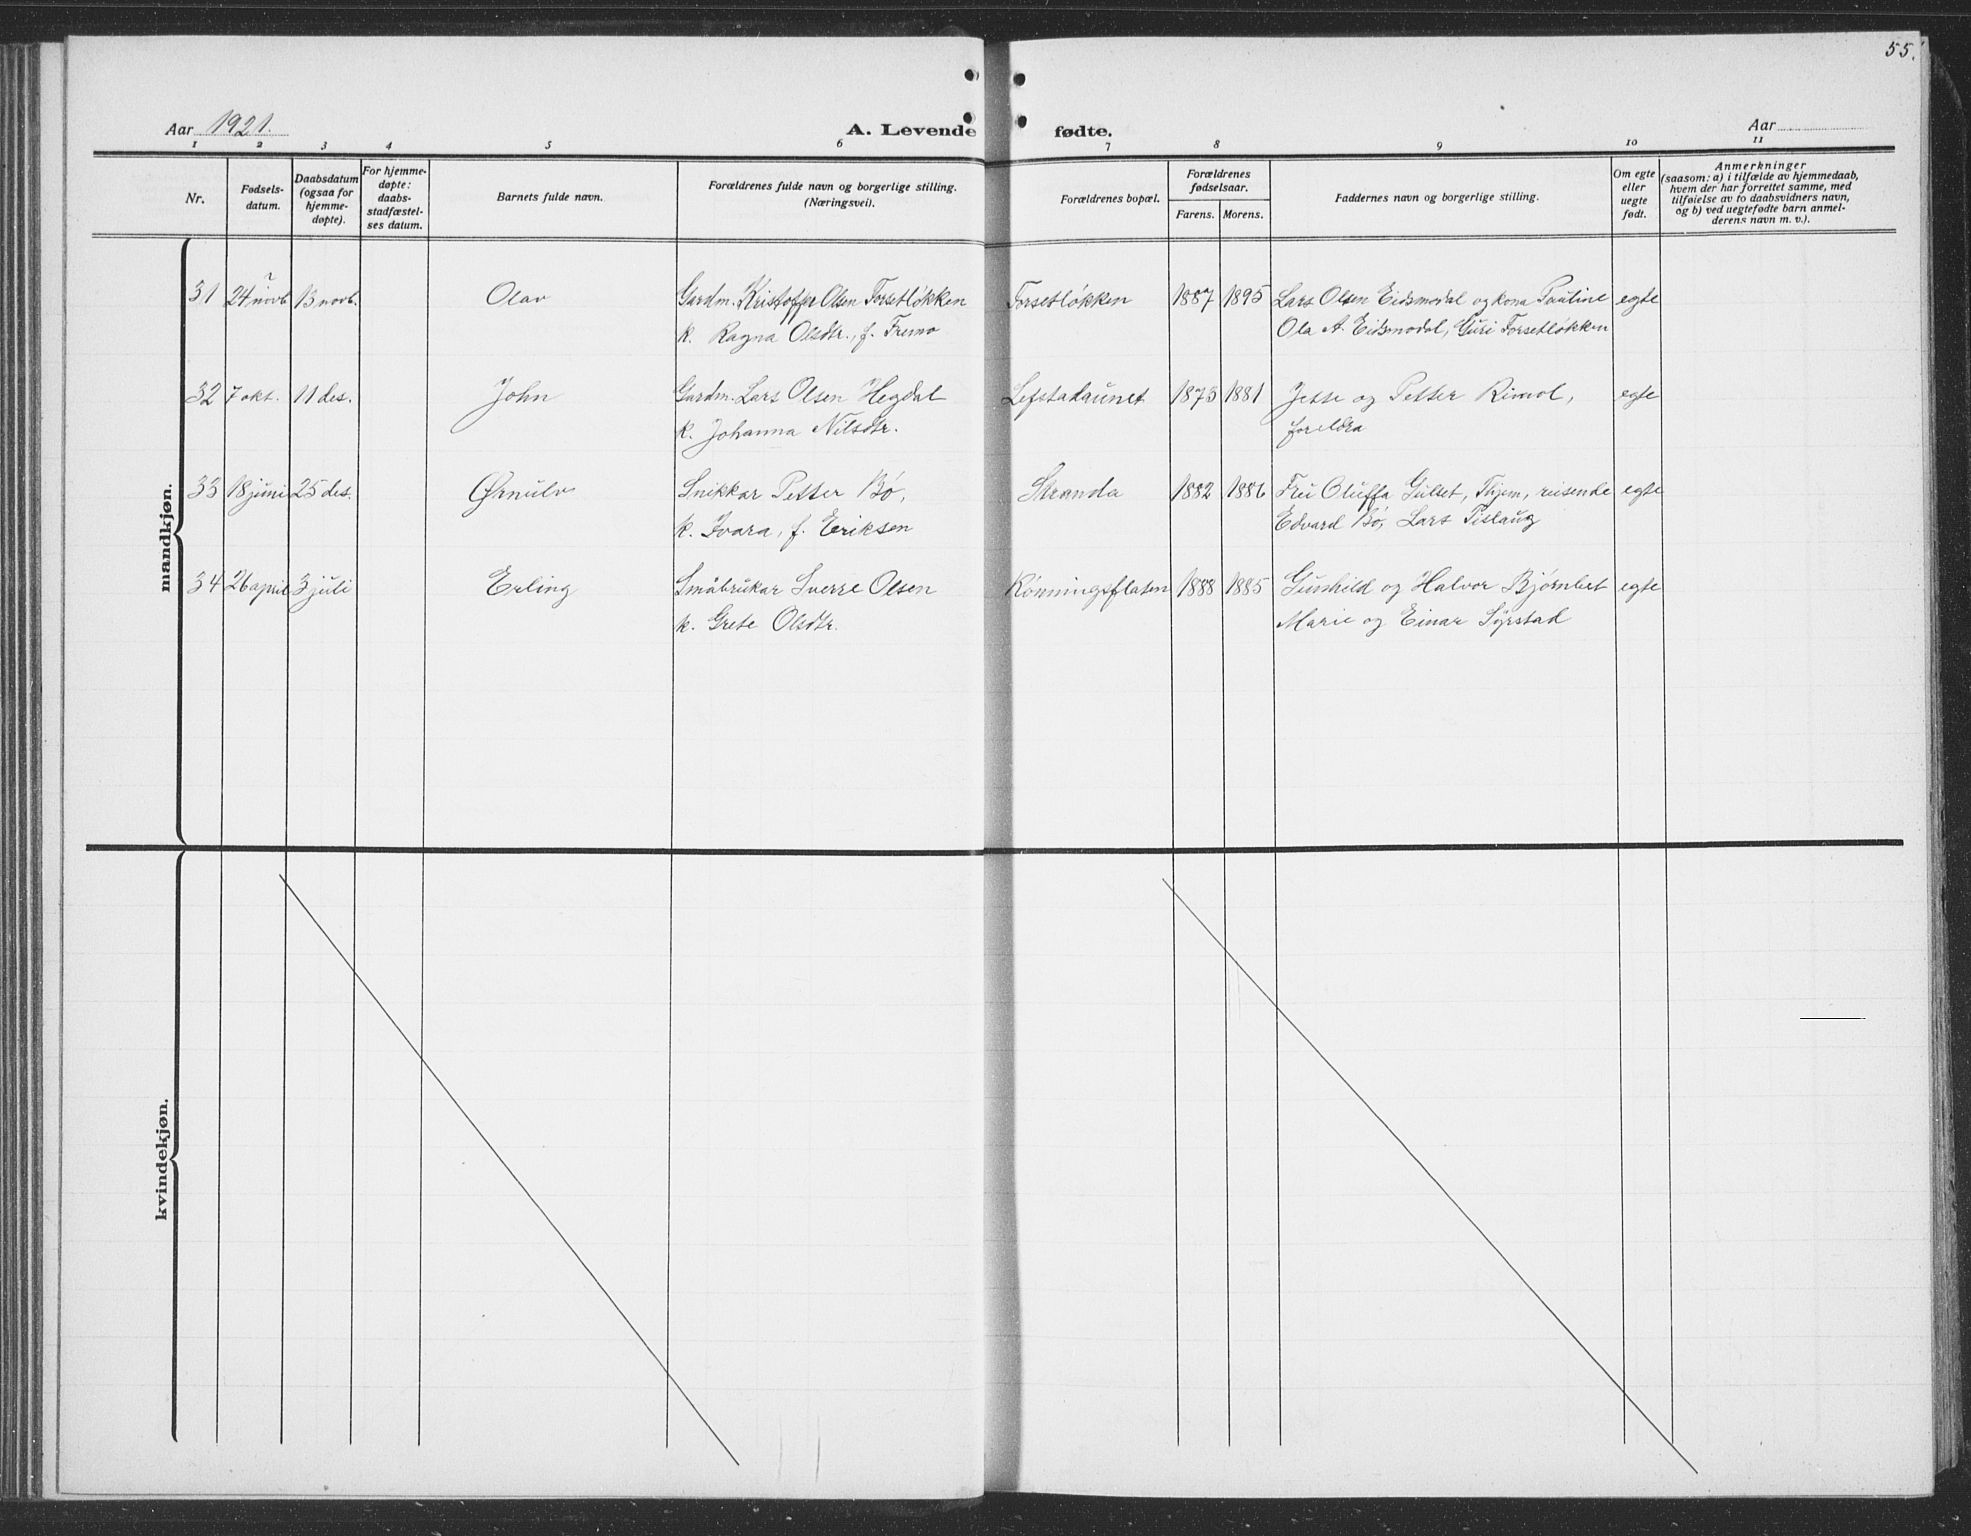 55.
Aar 1921.
A. Levende fødte.
Aar
1 2 3 4 5 6 7 8 9 10 11
Nr.
Fødsels-
datum.
Daabsdatum
(ogsaa for
hjemme-
døpte).
For hjemme-
døpte:
daabs-
stadfæstel-
ses datum.
Barnets fulde navn.
Forældrenes fulde navn og borgerlige stilling.
(Næringsvei).
Forældrenes bopæl.
Forældrenes
fødselsaar.
Farens. Morens.
Faddernes navn og borgerlige stilling.
Om egte
eller
uegte
født.
Anmerkninger
(saasom: a) i tilfælde av hjemmedaab,
hvem der har forrettet samme, med
tilføielse av to daabsvidners navn,
og b) ved uegtefødte barn anmel-
derens navn m. v.).
mandkjøn.
31 24 novb 13 novb. Olav Gardm. Kristoffer Olsen Forsetløkken Forsetløkken 1887 1895 Lars Olsen Eidsmodal og kona Pauline egte
k. Ragna Olsdtr., f. Fremo Ola A. Eidsmodal, Guri Forsetløkken
32 7 okt. 11 des. John Gardm. Lars Olsen Hegdal Lefstadaunet 1875 1881 Jesse og Petter Rimol, egte
k. Johanna Nilsdtr. foreldra
33 18 juni 25 des. Ørnulv Snikkar Petter Bó, Stranda 1882 1886 Fru Oluffa Gulset, Thjem, reisende egte
k. Ivara, f. Eriksen Edvard Bó, Lars Tislaug
34 26 april 3 juli Erling Småbrukar Sverre Olsen Rónningsflaten 1888 1885 Gunhild og Halvor Bjørnbet egte
k. Grete Olsdtr. Marie og Einar Syrstad
kvindekjøn.